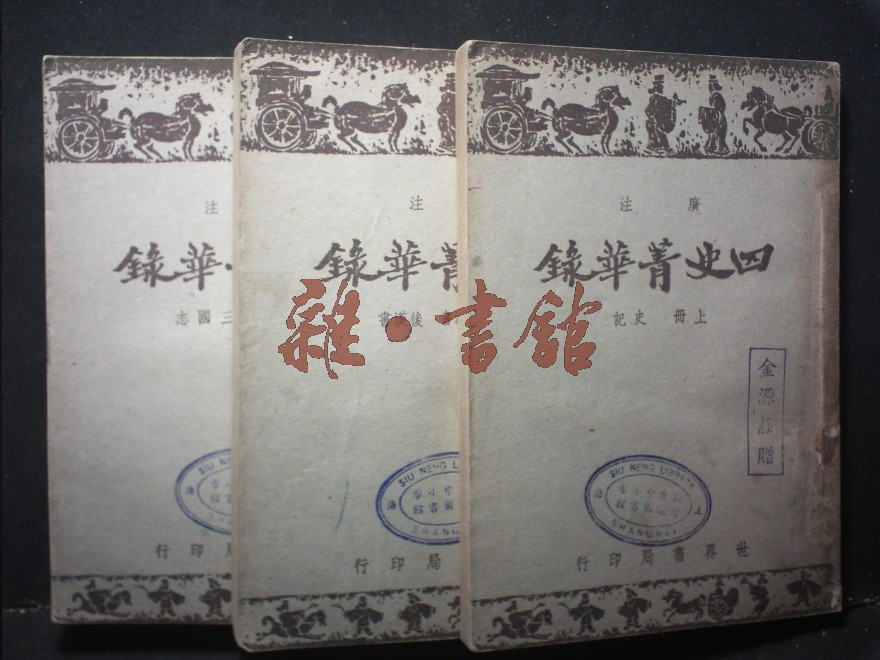 廣注
四史菁華錄
上冊 史記
金源莊贈
SIU NENG LIBRARY
上海
SHANGHAI
世界書局印行
注
菁華錄
後漢書
SIU NENG LI
海
SHANGHAI
局印行
注
華錄
三國志
SIU NENG
海
局印行
雜·書館